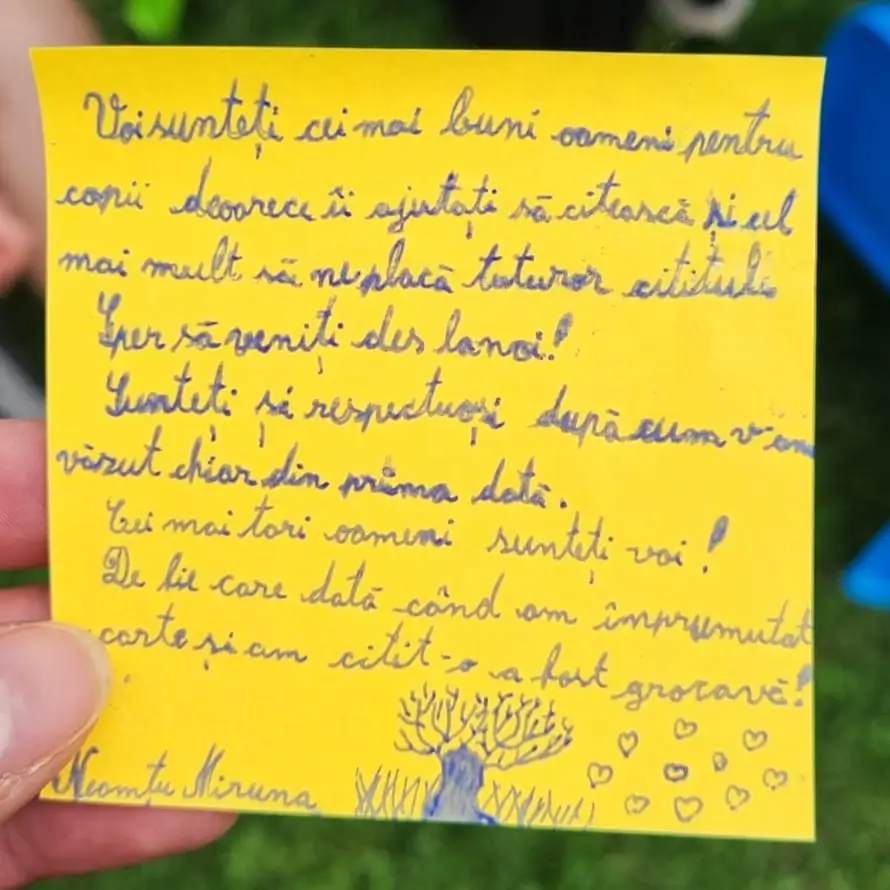 Voi sunteți cei mai buni oameni pentru
copii deoarece îi ajutați să citească și cel
mai mult să ne placă tuturor cititule
Sper să veniți des la noi!
Sunteți și respectuoși după cum v-am
văzut chiar din prima dată.
Cei mai tari oameni sunteți voi!
De fie care dată când am înprumutat
carte și am citit-o a fost grozavă!
Neamțu Miruna